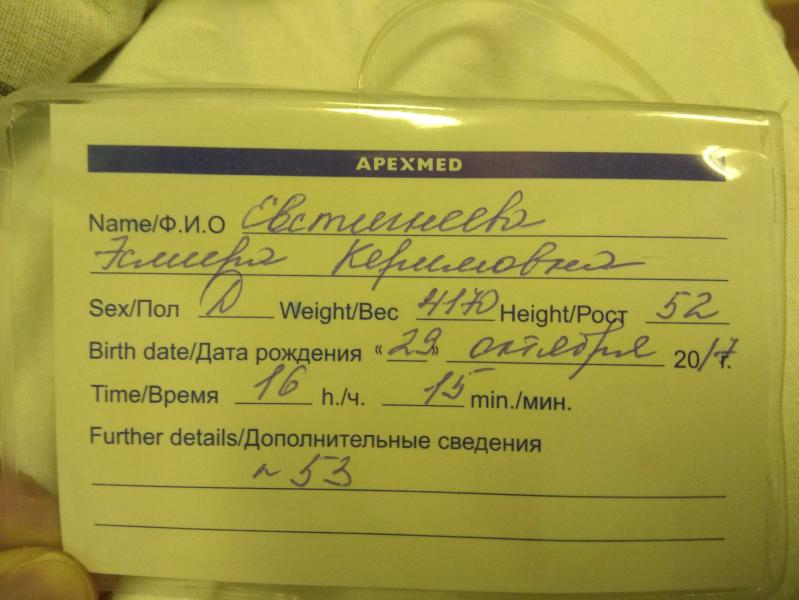 APEXMED
Name/Ф.И.О Евстигнеева
Эмира Керимовна
Sex/Пол Д Weight/Вес 4170 Height/Рост 52
Birth date/Дата рождения «29» октября 2017 г.
Time/Время 16 h./ч. 15 min./мин.
Further details/Дополнительные сведения
~ 53